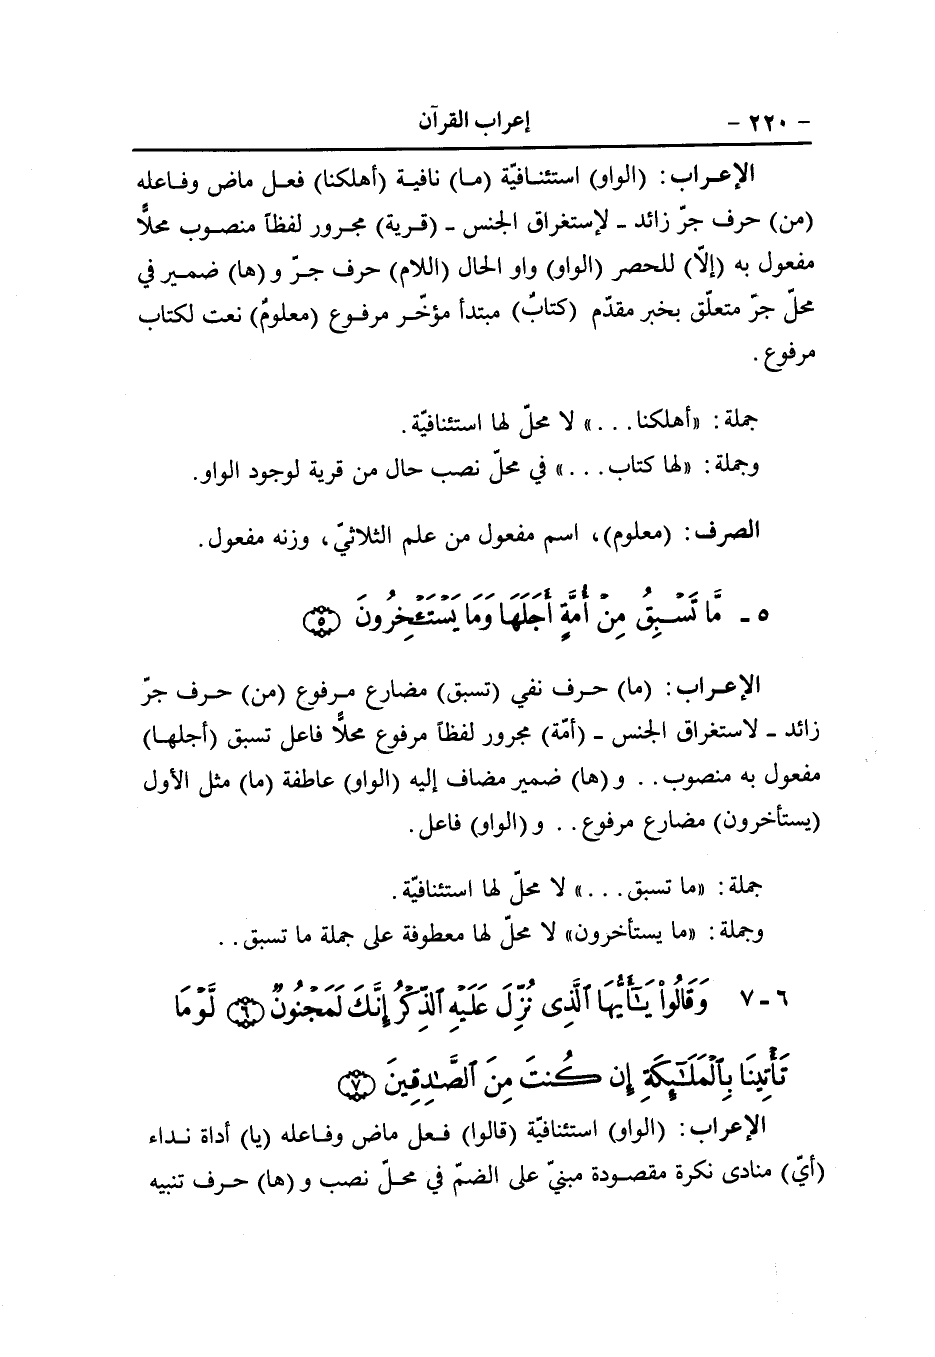 - ٢٢٠ - إعراب القرآن
الإعـراب: (الواو) استئنـافيّة (مـا) نافيـة (أهلكنا) فعـل ماض وفـاعله
(من) حرف جرّ زائد ـ لإستغراق الجنس ـ (قـرية) مجـرور لفظاً منصـوب محلاًّ
مفعول به (إلاّ) للحصر (الواو) واو الحال (اللام) حرف جـرّ و(ها) ضميـر في
محلّ جرّ متعلّق بخبر مقدّم (كتابٌ) مبتدأ مؤخّـر مرفـوع (معلومٌ) نعت لكتاب
مرفوع.
جملة: «أهلكنا...» لا محلّ لها استئنافيّة.
وجملة: «لها كتاب...» في محلّ نصب حال من قرية لوجود الواو.
الصرف: (معلوم)، اسم مفعول من علم الثلاثيّ، وزنه مفعول.
٥ ـ مَّا تَسۡبِقُ مِنۡ أُمَّةٍ أَجَلَهَا وَمَا يَسۡتَـٔۡخِرُونَ ﴿٥﴾
الإعـراب: (ما) حـرف نفي (تسبق) مضارع مـرفوع (من) حـرف جـرّ
زائد ـ لاستغراق الجنس ـ (أمّة) مجرور لفظاً مرفوع محلاًّ فاعل تسبق (أجلهـا)
مفعول به منصوب.. و(ها) ضمير مضاف إليه (الواو) عاطفة (ما) مثل الأول
(يستأخرون) مضارع مرفوع.. و(الواو) فاعل.
جملة: «ما تسبق...» لا محلّ لها استئنافيّة.
وجملة: «ما يستأخرون» لا محلّ لها معطوفة على جملة ما تسبق..
٦ ـ ٧ وَقَالُواْ يَـٰٓأَيُّهَا ٱلَّذِى نُزِّلَ عَلَيۡهِ ٱلذِّكۡرُ إِنَّكَ لَمَجۡنُونٌ ﴿٦﴾ لَّوۡمَا
تَأۡتِينَا بِٱلۡمَلَـٰٓئِكَةِ إِن كُنتَ مِنَ ٱلصَّـٰدِقِينَ ﴿٧﴾
الإعراب: (الواو) استئنافيّة (قالوا) فـعل ماض وفـاعله (يا) أداة نـداء
(أيّ) منادى نكرة مقصـودة مبنيّ على الضمّ في محـلّ نصب و(ها) حـرف تنبيه